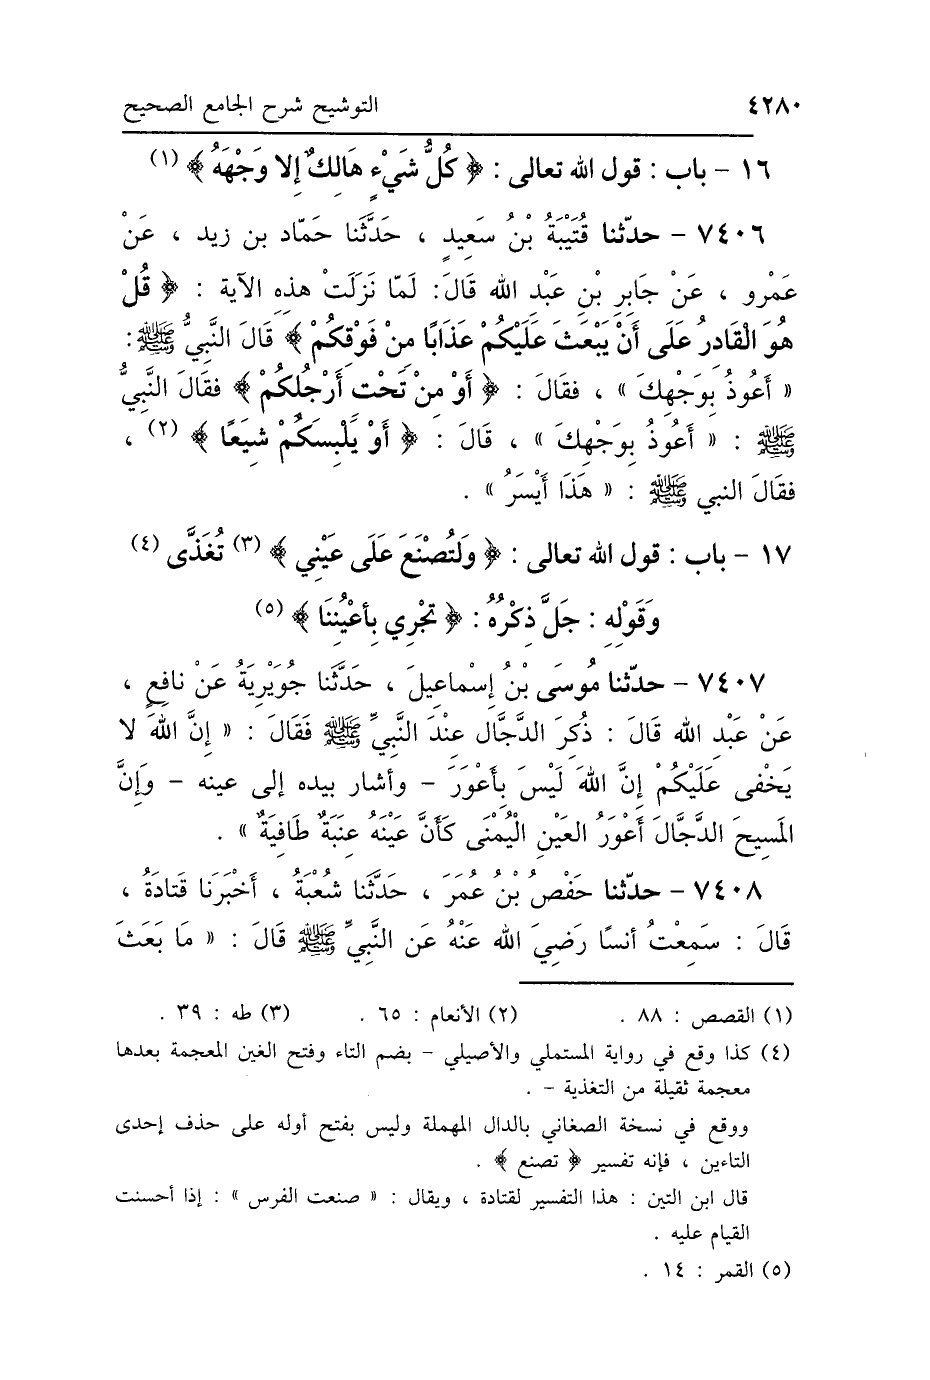 ٤٢٨٠ التوشيح شرح الجامع الصحيح
١٦ – باب : قول الله تعالى : ﴿ كُلُّ شَيْءٍ هَالِكٌ إِلا وَجْهَهُ ﴾ (١)
٧٤٠٦ – حدّثنا قُتَيْبَةُ بْنُ سَعِيدٍ ، حَدَّثَنا حَمّاد بن زيد ، عَنْ
عَمْرو ، عَنْ جَابِرِ بْنِ عَبْدِ الله قَالَ: لَمّا نَزَلَتْ هذِهِ الآية : ﴿ قُلْ
هُوَ الْقَادِرُ عَلَى أَنْ يَبْعَثَ عَلَيْكُمْ عَذَابًا مِنْ فَوْقِكُمْ ﴾ قَالَ النَّبِيُّ ﷺ:
« أَعُوذُ بِوَجْهِكَ » ، فقَالَ : ﴿ أَوْ مِنْ تَحْتِ أَرْجُلِكُمْ ﴾ فقَالَ النَّبِيُّ
ﷺ : « أَعُوذُ بِوَجْهِكَ » ، قَالَ : ﴿ أَوْ يَلْبِسَكُمْ شِيَعًا ﴾ (٢) ،
فقَالَ النبي ﷺ : « هَذَا أَيْسَرُ » .
١٧ – باب : قول الله تعالى : ﴿ وَلِتُصْنَعَ عَلَى عَيْنِي ﴾ (٣) تُغَذَّى (٤)
وَقَوْلِهِ : جَلَّ ذِكْرُهُ : ﴿ تَجْرِي بِأَعْيُنِنَا ﴾ (٥)
٧٤٠٧ – حدّثنا مُوسَى بْنُ إِسْماعِيلَ ، حَدَّثَنا جُوَيْرِيَةُ عَنْ نافِعٍ ،
عَنْ عَبْدِ الله قَالَ : ذُكِرَ الدَّجَّال عِنْدَ النَّبِيِّ ﷺ فَقَالَ : « إِنَّ اللهَ لا
يَخْفى عَلَيْكُمْ إِنَّ اللهَ لَيْسَ بِأَعْوَرَ – وأشار بيده إلى عينه – وَإِنَّ
المَسِيحَ الدَّجَّالَ أَعْوَرُ العَيْنِ الْيُمْنَى كَأَنَّ عَيْنَهُ عِنَبَةٌ طَافِيَةٌ » .
٧٤٠٨ – حدّثنا حَفْصُ بْنُ عُمَرَ ، حَدَّثَنا شُعْبَةُ ، أَخْبَرَنا قَتادَةُ ،
قَالَ : سَمِعْتُ أنسًا رَضِيَ الله عَنْهُ عَنِ النَّبِيِّ ﷺ قَالَ : « مَا بَعَثَ
(١) القصص : ٨٨ . (٢) الأنعام : ٦٥ . (٣) طه : ٣٩ .
(٤) كذا وقع في رواية المستملي والأصيلي – بضم التاء وفتح الغين المعجمة بعدها
معجمة ثقيلة من التغذية – .
ووقع في نسخة الصغاني بالدال المهملة وليس بفتح أوله على حذف إحدى
التاءين ، فإنه تفسير ﴿ تصنع ﴾ .
قال ابن التين : هذا التفسير لقتادة ، ويقال : « صنعت الفرس » : إذا أحسنت
القيام عليه .
(٥) القمر : ١٤ .